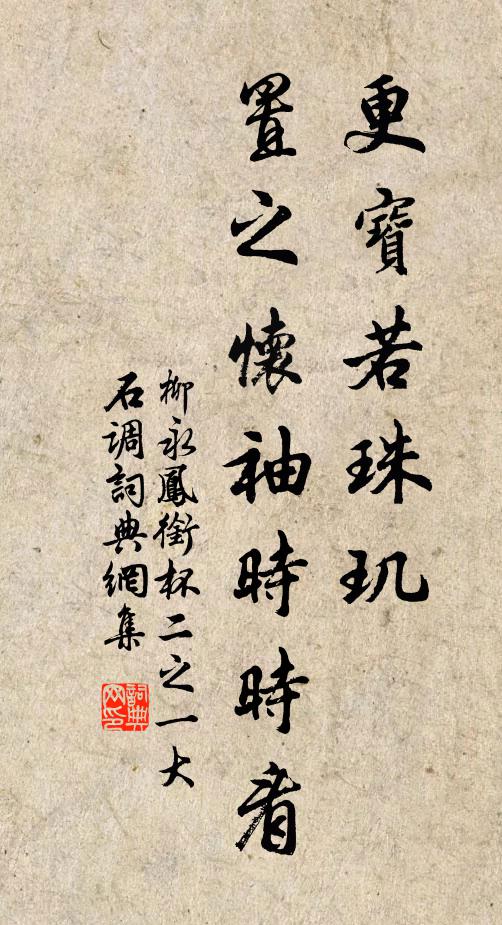 更寶若珠玑
置之懷袖時時看
柳永鳳銜杯二之一大
石調詞典網集
詞典网印